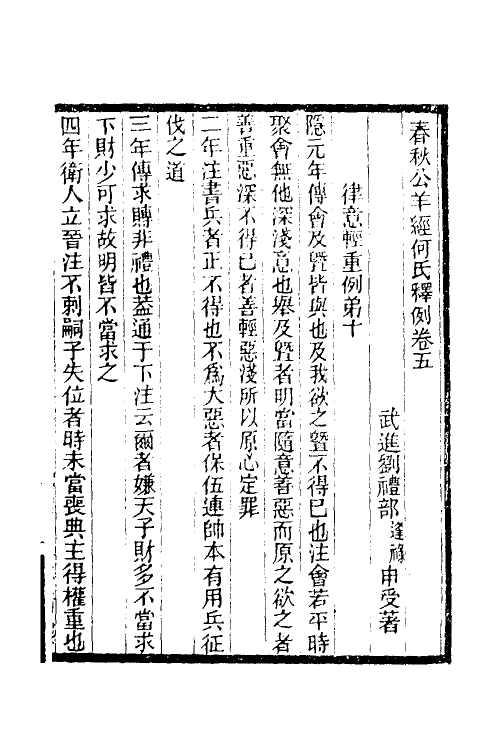 春秋公羊經何氏釋例卷五
武進劉禮部逢祿申受著
律意輕重例弟十
隱元年傳會及曁皆與也及我欲之曁不得已也注會若平時
聚會無他深淺意也舉及曁者明當隨意善惡而原之欲之者
善重惡深不得已者善輕惡淺所以原心定罪
二年注書兵者正不得也不爲大惡者保伍連帥本有用兵征
伐之道
三年傳求賻非禮也葢通于下注云爾者嫌天子財多不當求
下財少可求故明皆不當求之
四年衛人立晉注不刺嗣子失位者時未當喪典主得權重也